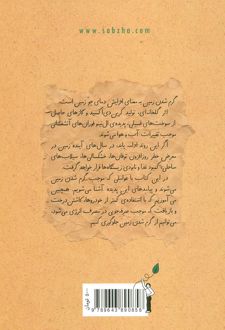 www.sabzha.com
گرم شدن زمین به معنای افزایش دمای جو زمین است.
اثر گلخانه‌ای، تولید کربن دی‌اکسید و گازهای حاصل
از سوخت‌های فسیلی، پدیده‌ی ال‌نینو فوران‌های آتشفشانی
موجب تغییرات آب و هوا می‌شوند.
اگر این روند ادامه یابد، در سال‌های آینده زمین در
معرض خطر روزافزون توفان‌ها، خشکسالی‌ها، سیلاب‌های
ساحلی و نابودی زیستگاه‌ها قرار خواهد گرفت.
در این کتاب با عواملی که موجب گرم شدن زمین
می‌شوند و پیامدهای این پدیده آشنا می‌شویم. همچنین می
آموزیم که با استفاده‌ی کمتر از خودروها، کاشتن درخت
و بازیافت، که موجب صرفه‌جویی در مصرف انرژی می‌شود،
می‌توانیم از گرم شدن زمین جلوگیری کنیم.
تومان
9789643890858